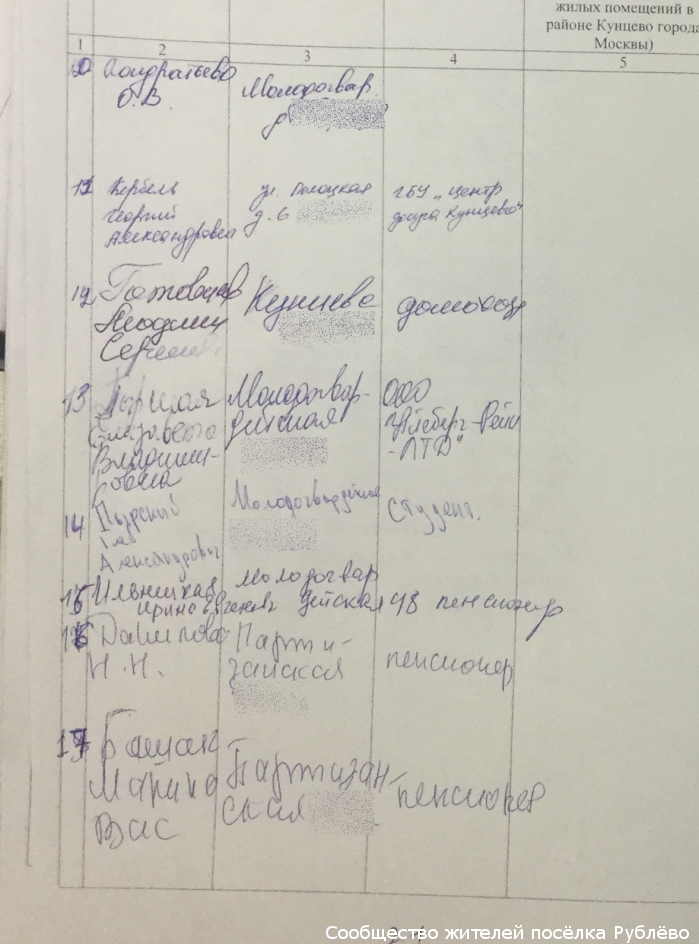 жилых помещений в
районе Кунцево города
Москвы)
1 2 3 4 5
Кондратьева
О.В.
Молодогвар.
д
11 Кербель
Георгий
Александрович
ул. Полоцкая
д. 6
ГБУ „Центр
досуга Кунцево"
12
Людмила
Сергеевна
Кунцево
домохоз
13
Елизавета
Владими-
ровна
Молодогвар-
дейская
ООО
-ЛТД"
14
Глеб
Александрович
Молодогвардейская
студент.
15 Ильницкая
Ирина Евгеньев
Молодогвар
дейская 48 пенсионер
16 Данилова
Н.Н.
Парти-
занская
пенсионер
17
Марина
Вас
Партизан-
ская
пенсионер
Сообщество жителей посёлка Рублёво